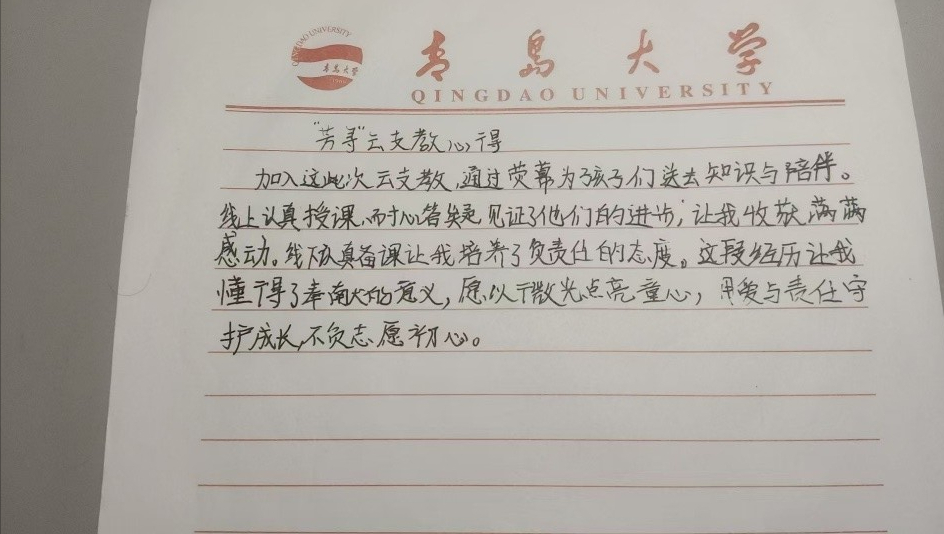 QINGDAO UNIVERSITY
青岛大学
青岛大学
QINGDAO UNIVERSITY
“芳寻”云支教心得
加入这此次云支教,通过荧幕为孩子们送去知识与陪伴。
线上认真授课,耐心答疑,见证了他们的进步,让我收获满满
感动。线下认真备课让我培养了负责任的态度。这段经历让我
懂得了奉献的意义,愿以微光点亮童心,用爱与责任守
护成长,不负志愿初心。